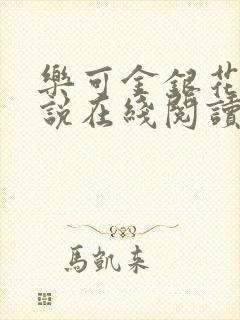 樂可金銀花
說在綫閱讀
馬凱來